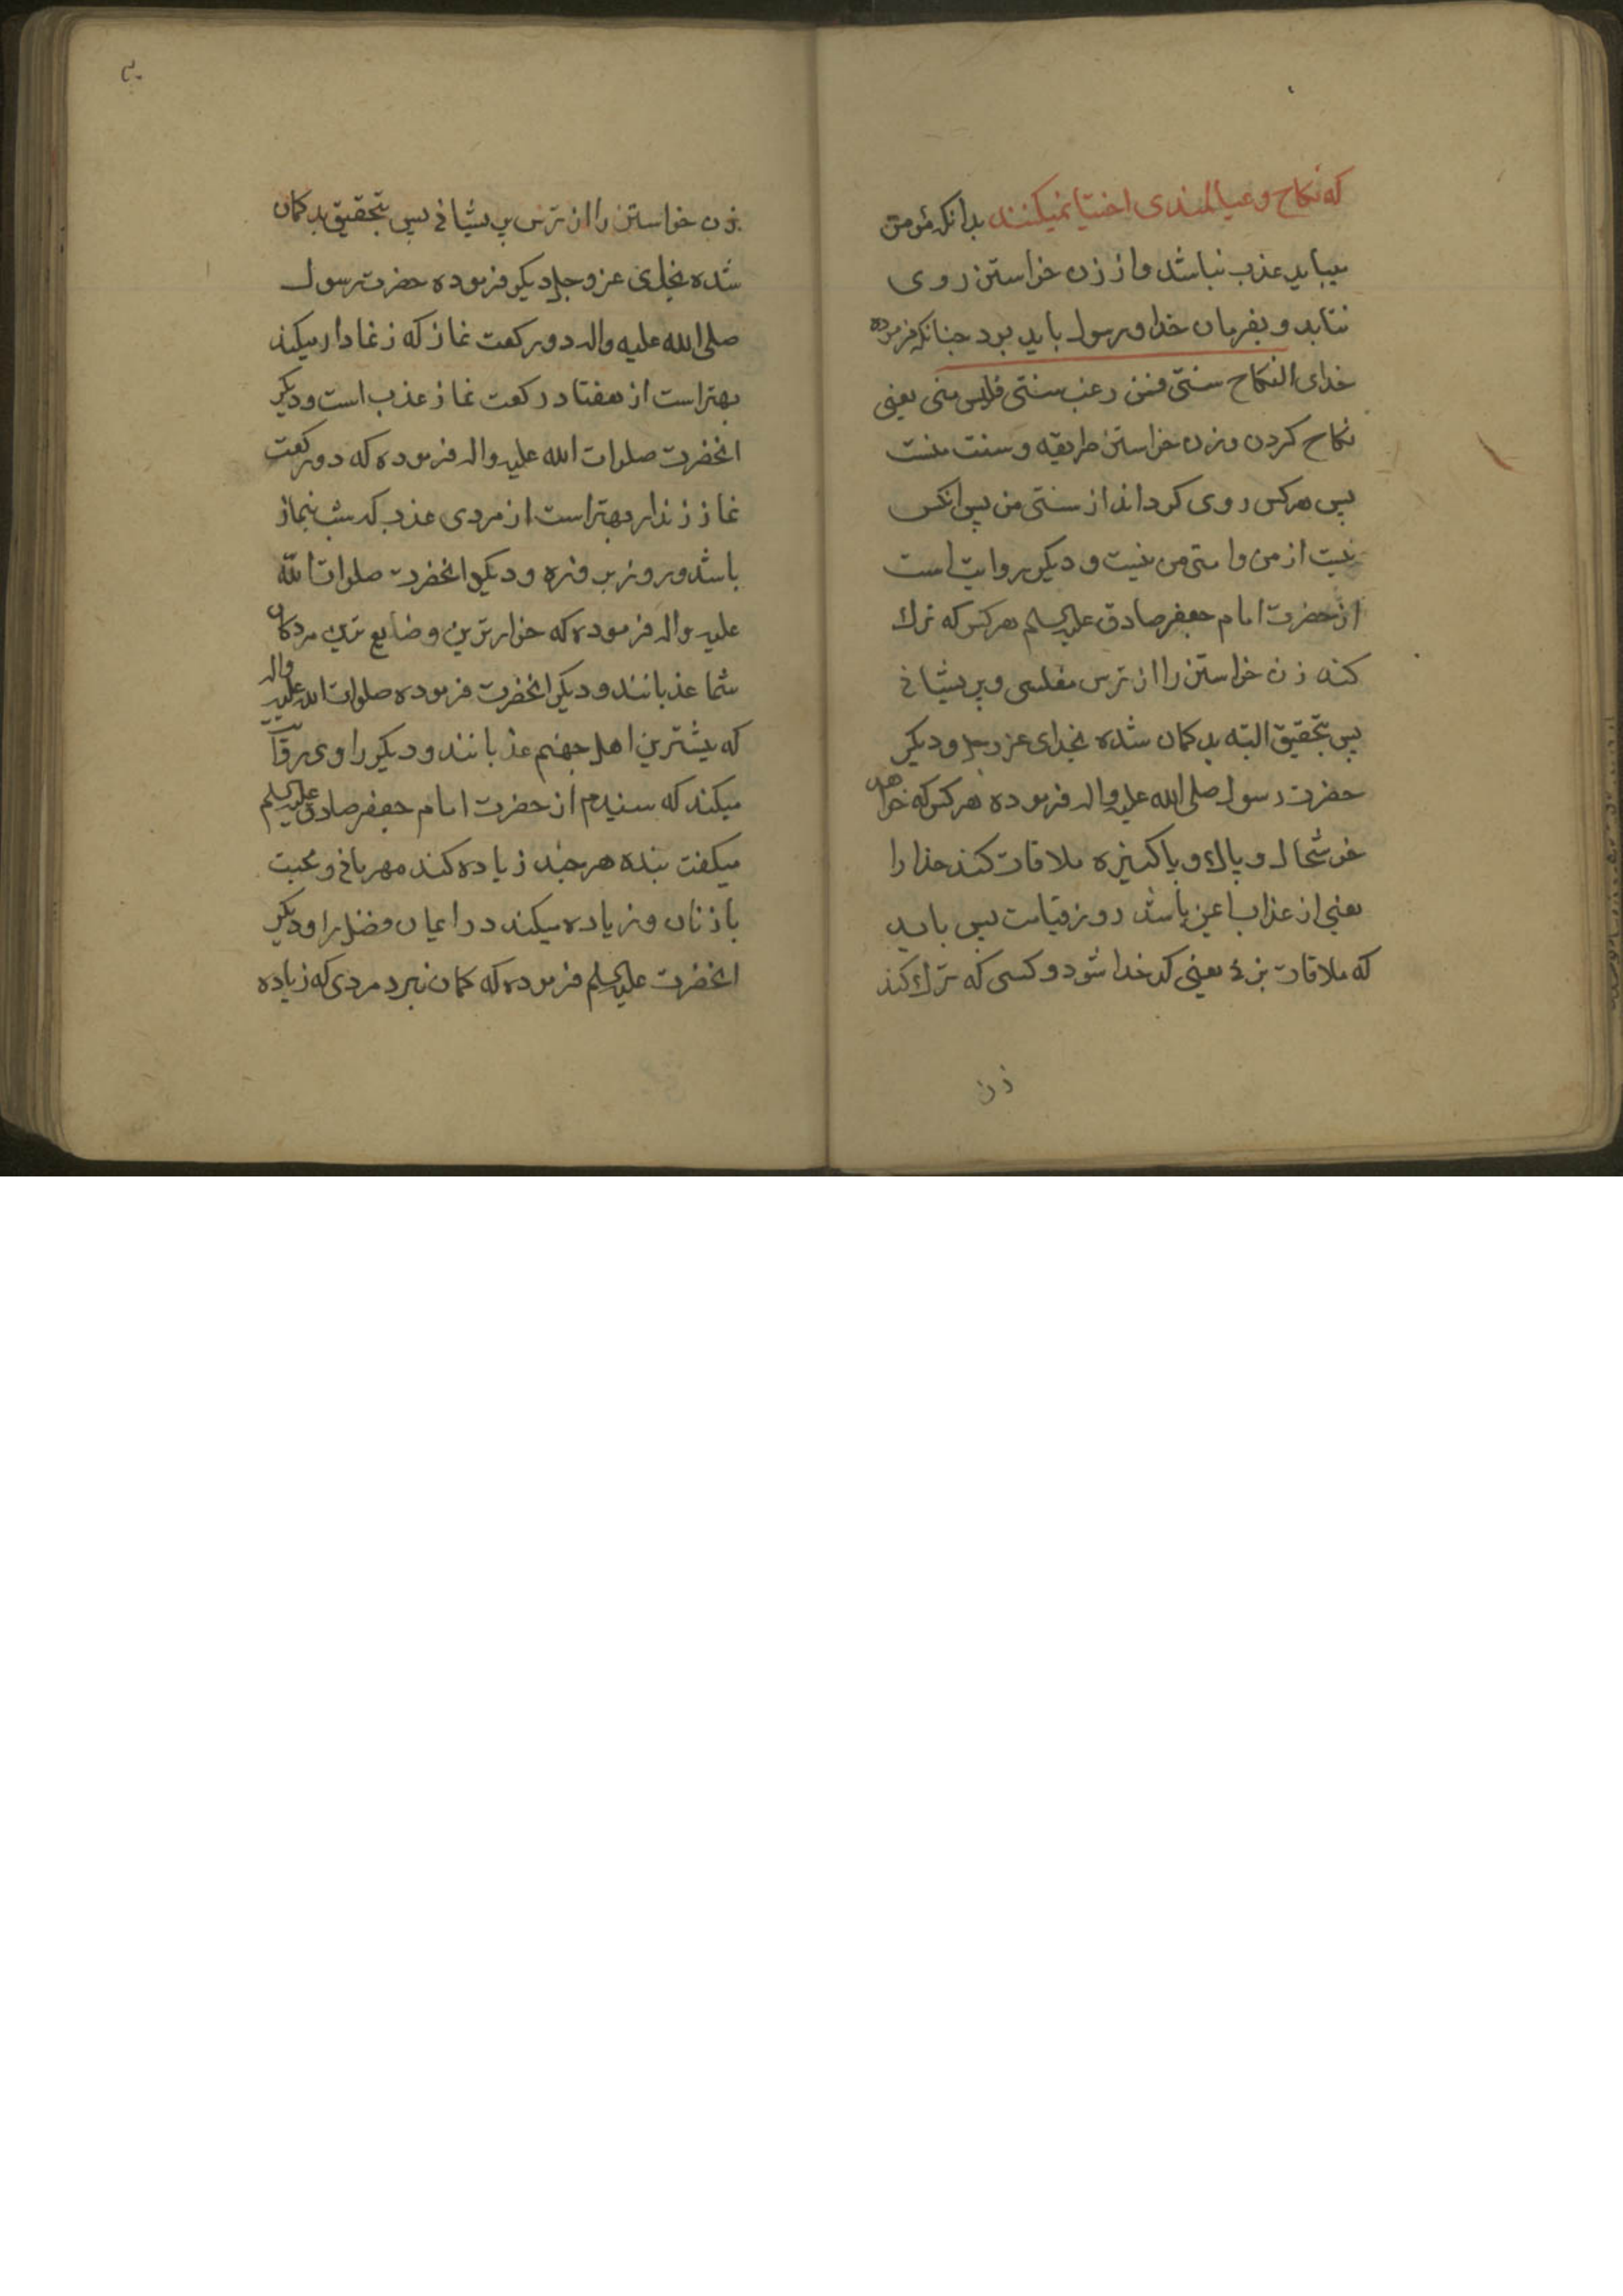 که نکاح و عیالمندی اختیا نمیکنند بدانکه مؤمن
میباید عذب نباشد و از زن خواستن روی
نتابد و بفرمان خدا و رسول باید بود جنانکه فرموده
خدای النکاح سنتی فمن رغب سنتی فلیس منی یعنی
نکاح کردن و زن خواستن طریقه و سنت منست
پس هرکس روی کرداند از سنتی من پس انکس
نیست از من و امتی من نیست و دیکر روایت است
از حضرت امام جعفر صادق علیه السلم هرکس که ترك
کند زن خواستن را از ترس مفلسی و پریشانی
پس بتحقیق البته بدکمان شده بخدای عز و جل و دیکر
حضرت رسول صلی الله علیه واله فرموده هرکس که خواهد
خوشحال و پاك و پاکیزه ملاقات کند خدا را
یعنی از عذاب ایمن باشد روز قیامت پس باید
که ملاقات بزنی یعنی کدخدا شود و کسی که ترك کند
زن
زن خواستن را از ترس پریشانی پس بتحقیق بدکمان
شده بخدای عز و جل دیکر فرموده حضرت رسول
صلی الله علیه واله دو رکعت نماز که زنمادار میکند
بهتر است از هفتاد رکعت نماز عذب است و دیکر
انحضرت صلوات الله علیه واله فرموده که دو رکعت
نماز زندار بهتر است از مردی عذب که شب بنماز
باشد و روز بروزه و دیکر انحضرت صلوات الله
علیه واله فرموده که خوارترین و ضایع ترین مردکان
شما عذبانند و دیکر انحضرت فرموده صلوات الله علیه واله
که بیشترین اهل جهنم عذبانند و دیکر راوی روایت
میکند که سنیدم از حضرت امام جعفر صادق علیه السلم
میکفت بنده هر جند زیاده کند مهربانی و محبت
با زنان و زیاده میکند در ایمان فضل را و دیکر
انحضرت علیه السلم فرموده که کمان نبرد مردی که زیاده